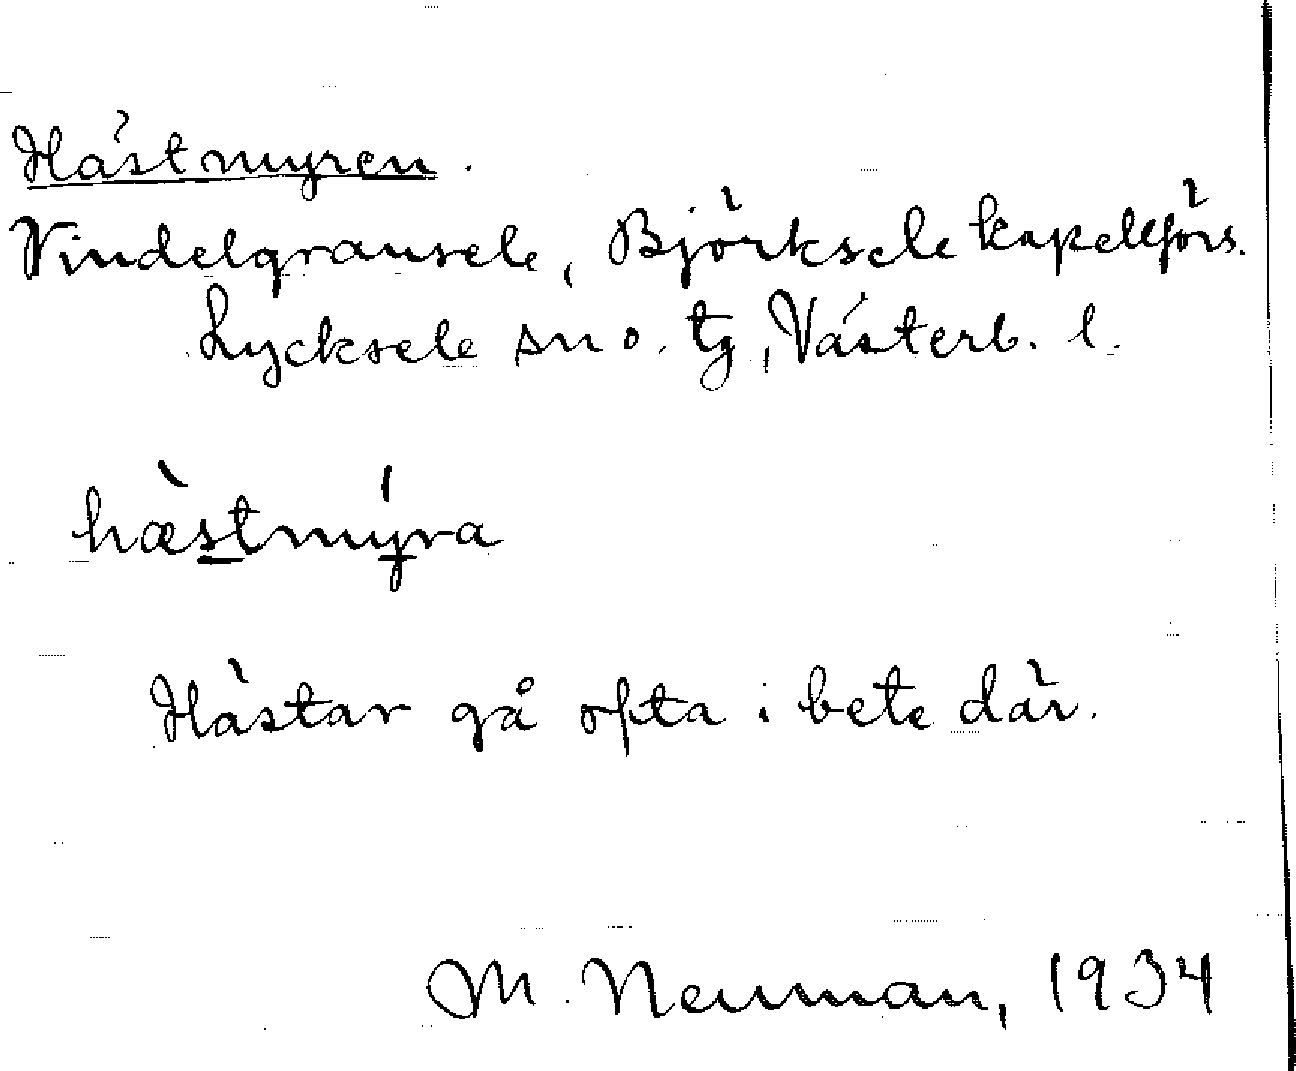 Hästmyren.
Vindelgransele, Björksele kapellförs.
Lycksele sn o. tg, Västerb. l.
hæ̀stmýra
Hästar gå ofta i bete där.
M. Neuman, 1934